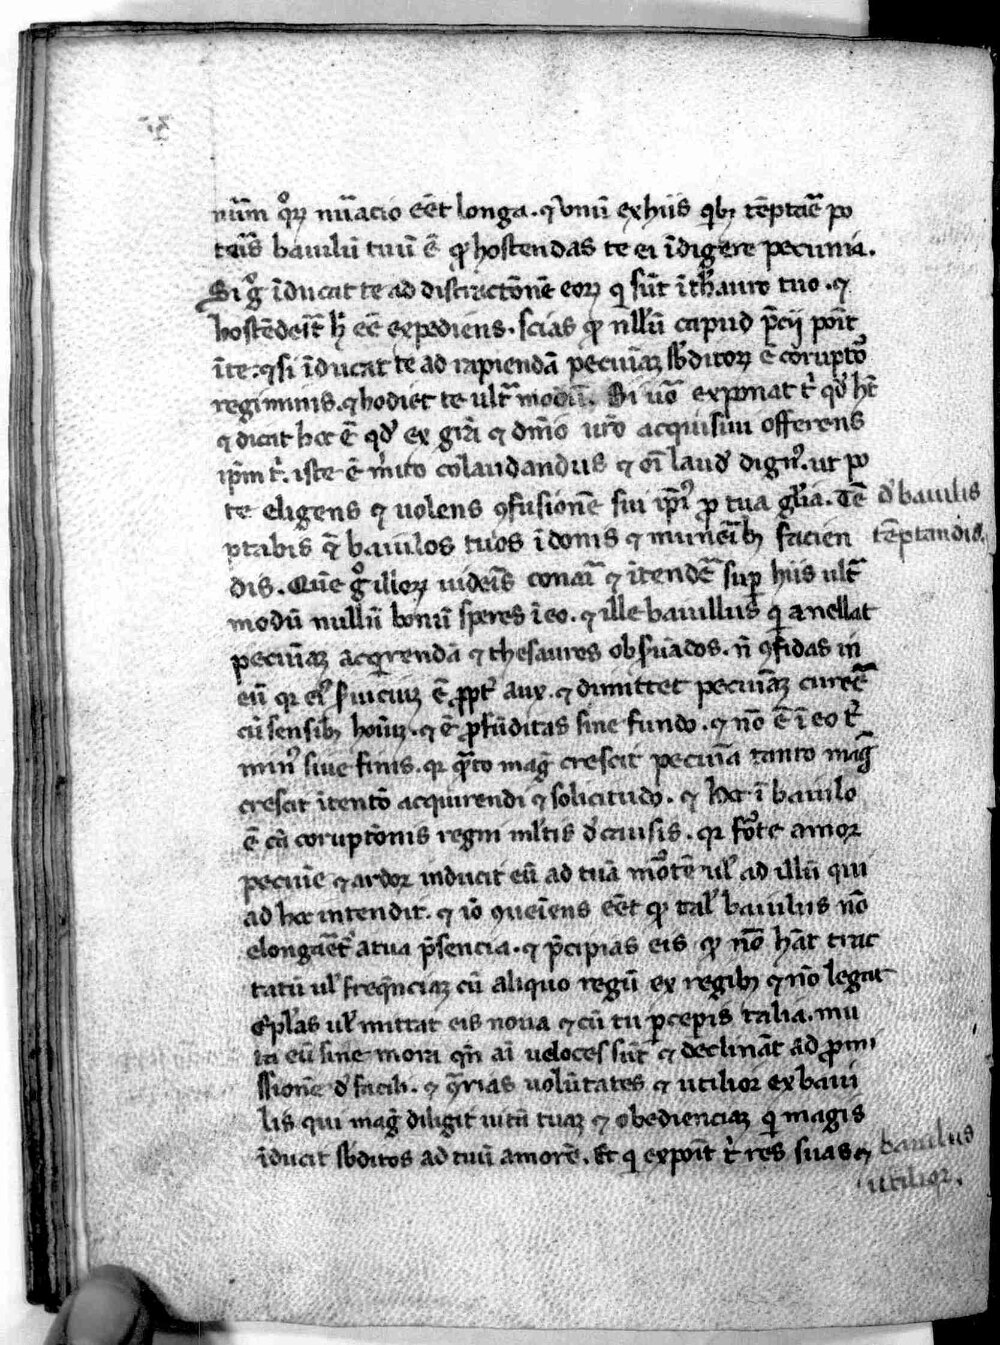 nūm quoꝝ nūacio eēt longa. ⁊ vnū ex hiis qͥbꝫ tēptāe po
tīs bauilū tuū ē ꝙ hostendas te ei īdigere pecunia.
Si gͦ īducat te ad distractōnē eoꝝ q sūt ī thauro tuo. ⁊
hostēdeīt h eē expediens. scias ꝙ nllū capud pͥcij poīt
īte. ⁊ si īducat te ad rapiendā pecuīaꝫ sbditoꝝ ē corupto
regiminis. ⁊ hodiet te ultͣ modū. Si uͦo exponat tͥ qd hꝫ
⁊ dicat hoc ē qd ex grā ⁊ dn̄io uro acquisiui offerens
ip̄m tͥ. iste ē mͥito colaudandus ⁊ oī laud dignꝰ. ut po
te eligens ⁊ uolens ꝯfusionē sui ip̄iꝰ ꝓ tua glīa. Tē
ptabis q̄ bauilos tuos ī donis ⁊ muneībꝫ facien
dis. Quē gͦ illoꝝ uideīs conaī ⁊ ītendē suꝑ hiis ultͣ
modū nullū bonū speres ī eo. ⁊ ille bauillus qͥ anellat
pecuīaꝫ acqͥrendā ⁊ thesauros obsuādos. n̄ ꝯfidas in
eū qꝛ eiꝰ suicuꝫ ē ꝓpt aux. ⁊ dimittet pecuīaꝫ currē
cū sensibꝫ hoīuꝫ. ⁊ ē ꝓfūditas sine fundo. ⁊ nō ē ī eo tͥ
minꝰ siue finis. qꝛ qͣto mag crescit pecuīa tanto mag
crescit ītentō acquirendi ⁊ solicitudo. ⁊ hoc ī bauilo
ē cā coruptōnis regni mltis d causis. qꝛ foͥte amor
pecuīe ⁊ ardor inducit eū ad tuā moͬtē ul ad illū qui
ad hoc intendit. ⁊ iō ꝯueīens eēt ꝙ tal bauilus nō
elongaēt a tua pͥsencia. ⁊ pͥcipias eis ꝙ nō hāt trac
tatū ul freqͣnciaꝫ cū aliquo regū ex regibꝫ ⁊ nō legāt
eplas ul mittat eis noua ⁊ cū tu ꝑcepis talia. mu
ta eū sine mora qn̄ aī ueloces sūt ⁊ declināt ad ꝓmi
ssionē d facili. ⁊ qͣrias uolūtates ⁊ utilior ex baui
lis qui mag diligit uitā tuaꝫ ⁊ obedienciaꝫ qͥ magis
īducit sbditos ad tuū amorē. Et qͥ expoīt tͥ res suas ⁊
d bauilis
tēptandis.
bauilus
utilior.